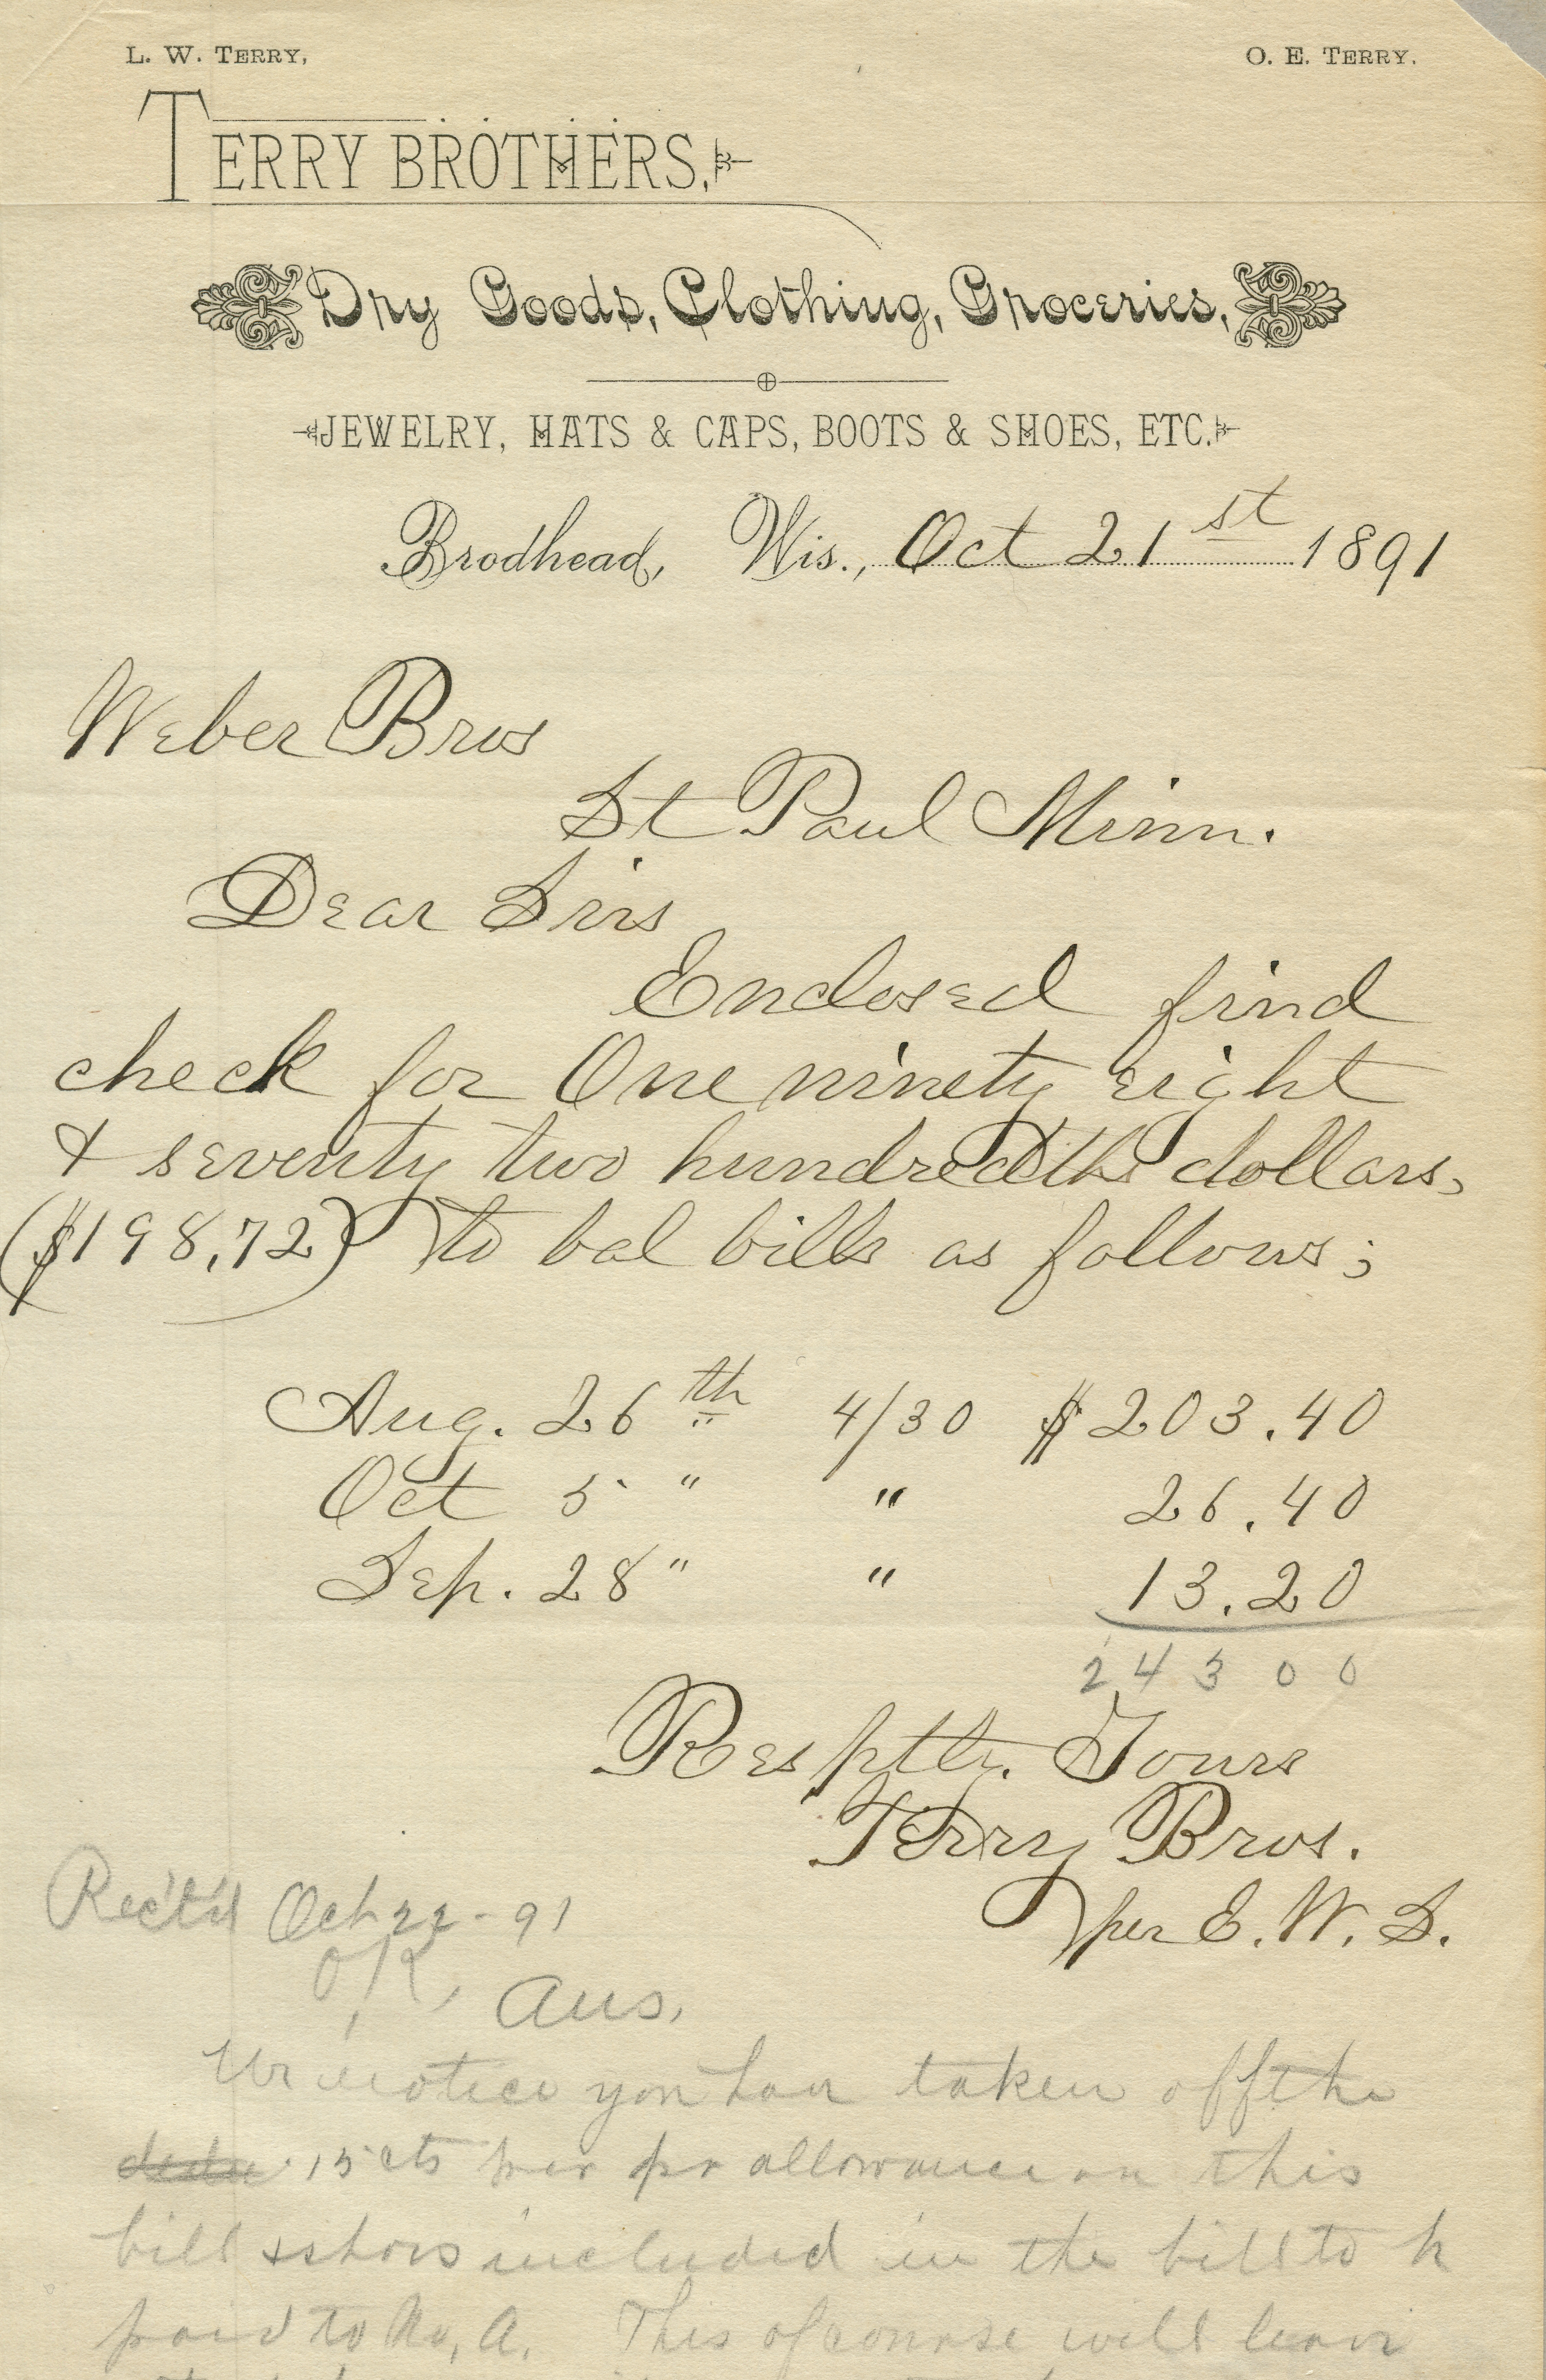 L. W. TERRY,
O. E. TERRY.
TERRY BROTHERS,
Dry Goods, Clothing, Groceries,
JEWELRY, HATS & CAPS, BOOTS & SHOES, ETC.
Brodhead, Wis., Oct 21st 1891
Weber Bros
St Paul Minn.
Dear Sirs
Enclosed find
check for One ninety eight
& seventy two hundredths dollars,
($198.72) to bal bills as follows;
Aug. 26th 4/30 $203.40
Oct 5 " " 26.40
Sep. 28 " " 13.20
243 00
Resptly. Yours
Terry Bros.
per E. W. S.
Rec'td Oct 22-91
OK, Ans,
We notice you have taken off the
15 cts per pr allowance on this
bill & shoes included in the bill to h
paid to No, A. This of course will leave